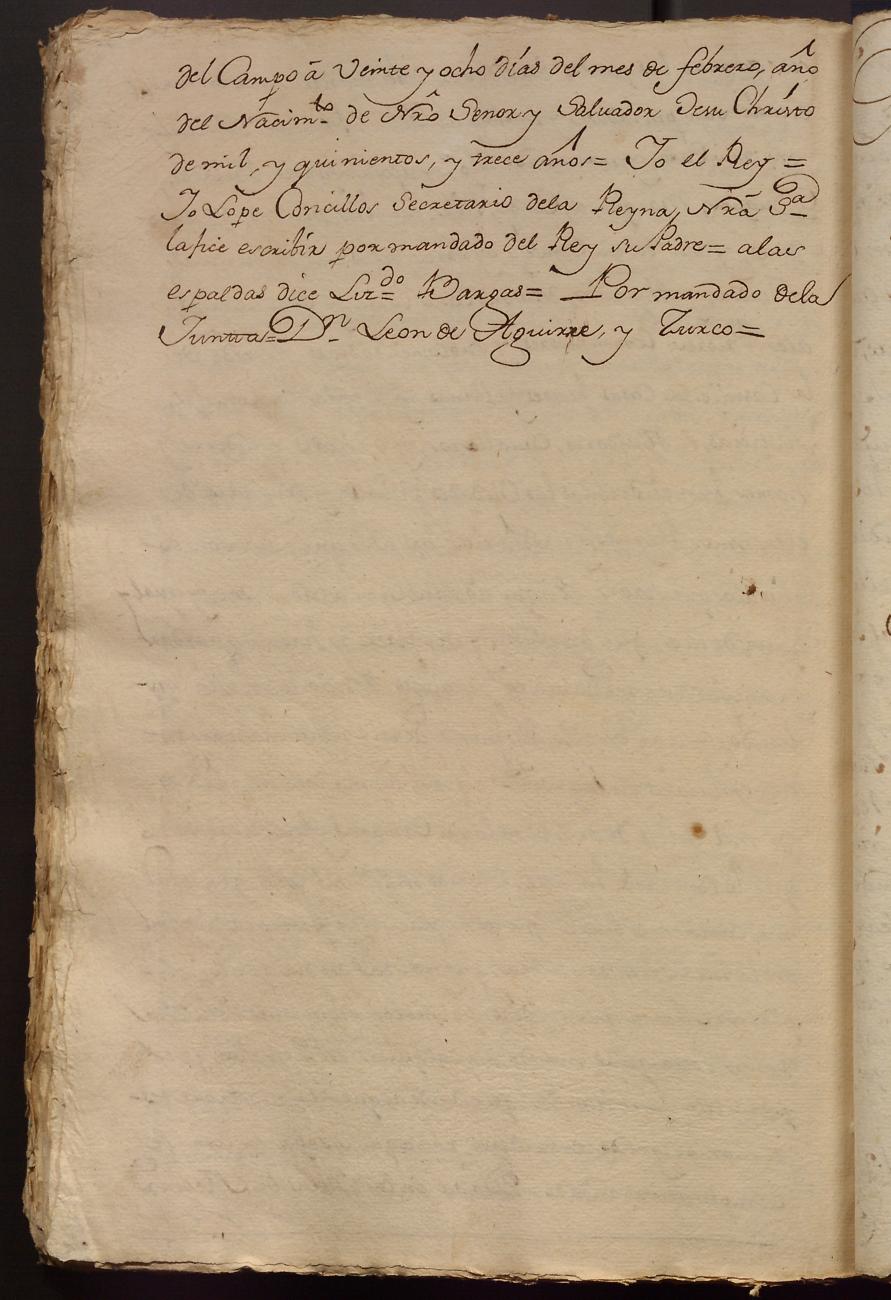 del Campo â Veinte y ocho días del mes de febrero, año
del Nacim.to de Nrô Senor y Salvador Jesu Christo
de mil, y quinientos, y trece años= Yo el Rey =
Yo Lope Conicillos Secretario dela Reyna, Nrâ S.a
lafice escribir por mandado del Rey su Padre= alas
espaldas dice Liz.do Bargas= Por mandado dela
Juntta= D.n Leon de Aguirre, y Zurco=